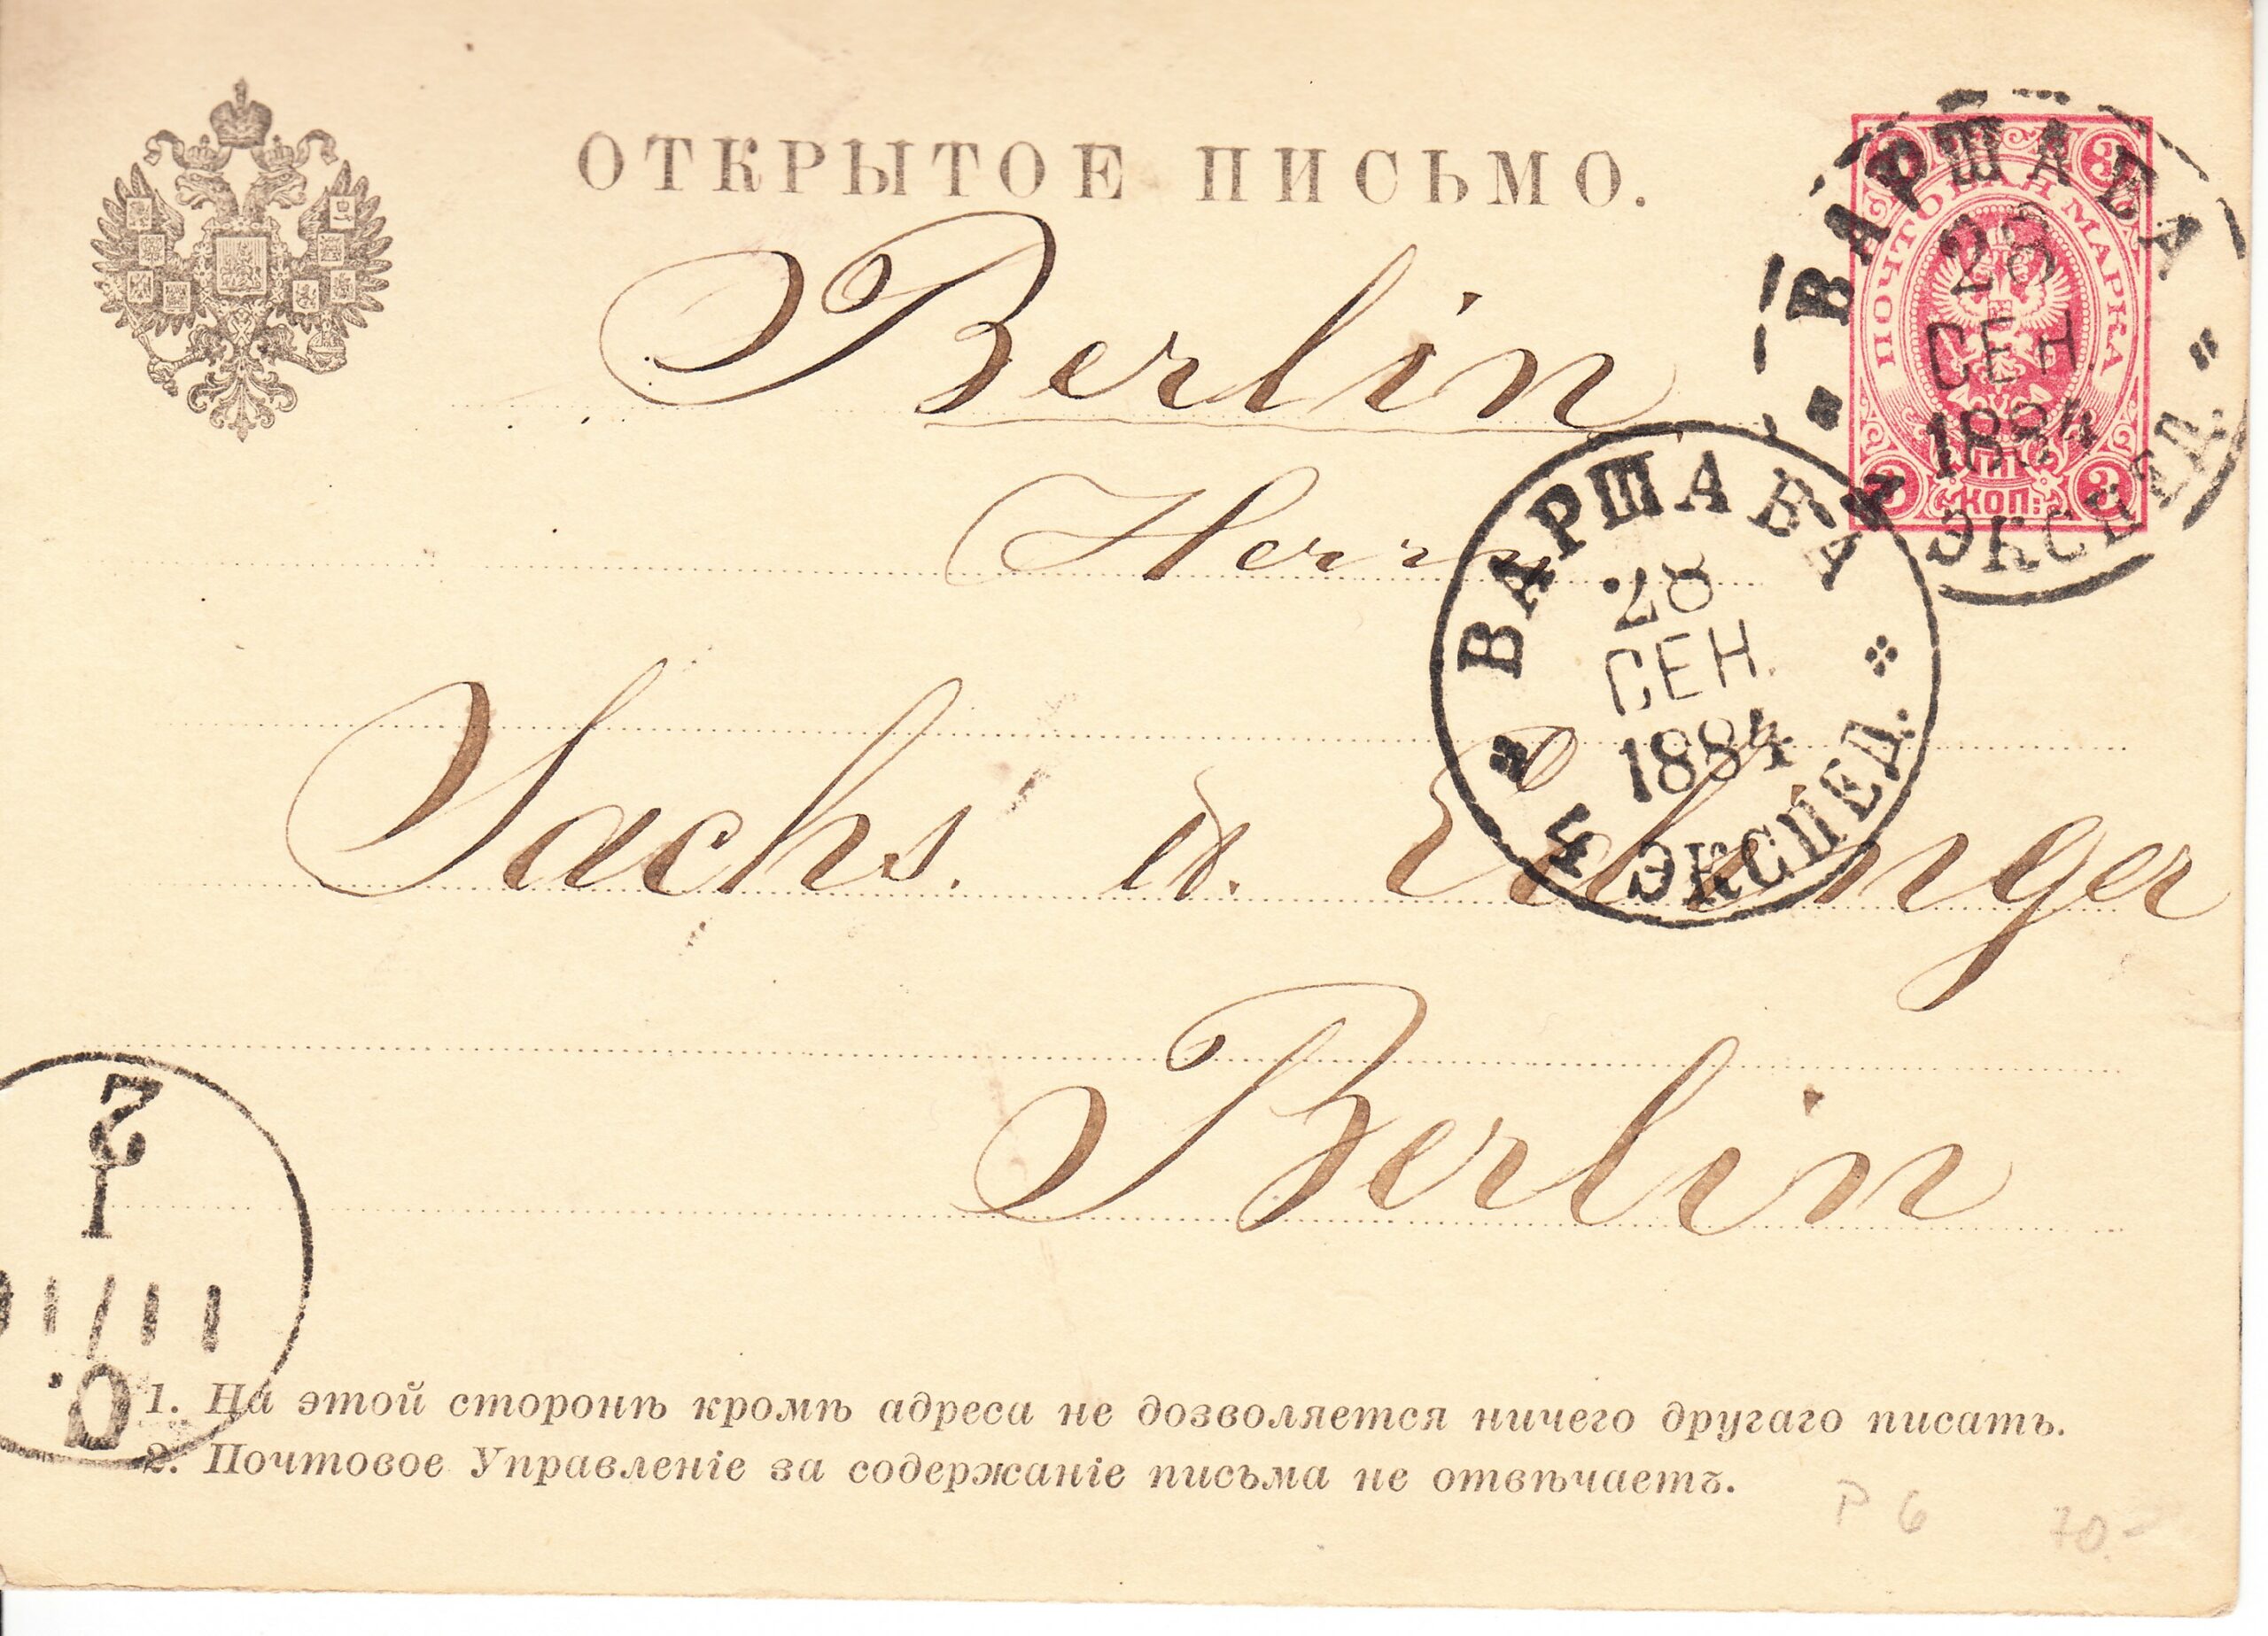 ОТКРЫТОЕ ПИСЬМО.
ПОЧТОВАЯ МАРКА
3 3
3 3
III
КОП.
ВАРШАВА
28
СЕН.
1884
ЭКСПЕД.
Berlin
Herrn
ВАРШАВА
28
СЕН.
1884
4 ЭКСПЕД.
Sachs. &.
Berlin
2
1
11/10
O.
1. На этой сторонѣ кромѣ адреса не дозволяется ничего другаго писать.
2. Почтовое Управленіе за содержаніе письма не отвѣчаетъ.
P 6 70.-